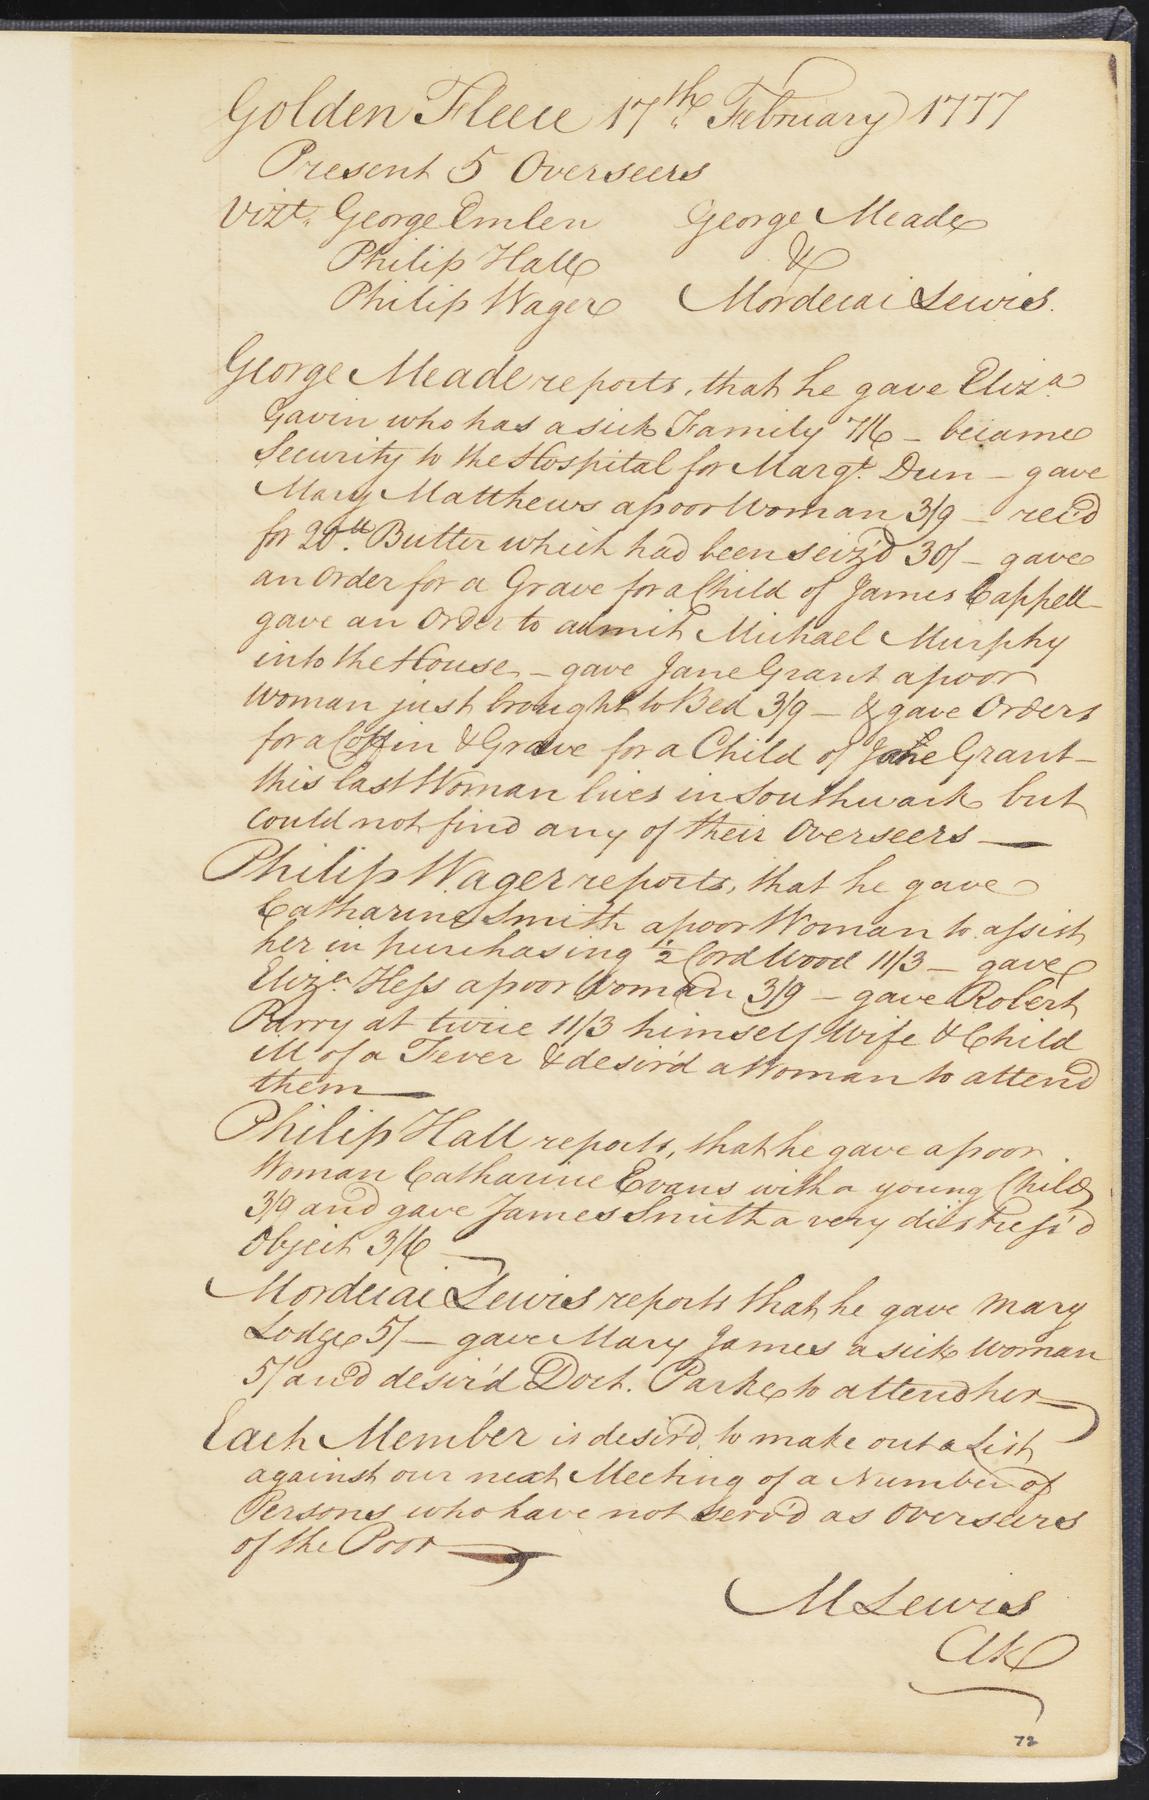 Golden Fleece 17th February 1777
Present 5 Overseers
Vizt. George Emlen George Meade
Philip Hall &
Philip Wager Mordecai Lewis.
George Meade reports, that he gave Eliza
Gavin who has a sick Family 7/6 – became
Security to the Hospital for Margt. Dun – gave
Mary Matthews a poor Woman 3/9 – rec'd
for 20lb. Butter which had been seiz'd 30/ – gave
an Order for a Grave for a Child of James Cappell –
gave an Order to admit Michael Murphy
into the House – gave Jane Grant a poor
Woman just brought to Bed 3/9 – & gave Orders
for a Coffin & Grave for a Child of Jane Grant –
this last Woman lives in Southwark but
could not find any of their Overseers —
Philip Wager reports, that he gave
Catharine Smith a poor Woman to assist
her in purchasing ½ Cord Wood 11/3 – gave
Eliza. Hess a poor Woman 3/9 – gave Robert
Parry at twice 11/3 himself Wife & Child
ill of a Fever & desir'd a Woman to attend
them —
Philip Hall reports, that he gave a poor
Woman Catharine Evans with a young Child
3/9 and gave James Smith a very distress'd
Object 3/6 —
Mordecai Lewis reports that he gave Mary
Lodge 5/ – gave Mary James a sick Woman
5/ and desir'd Doct. Parke to attend her —
Each Member is desir'd, to make out a List
against our next Meeting of a Number of
Persons who have not serv'd as Overseers
of the Poor —
M Lewis
Clk
72